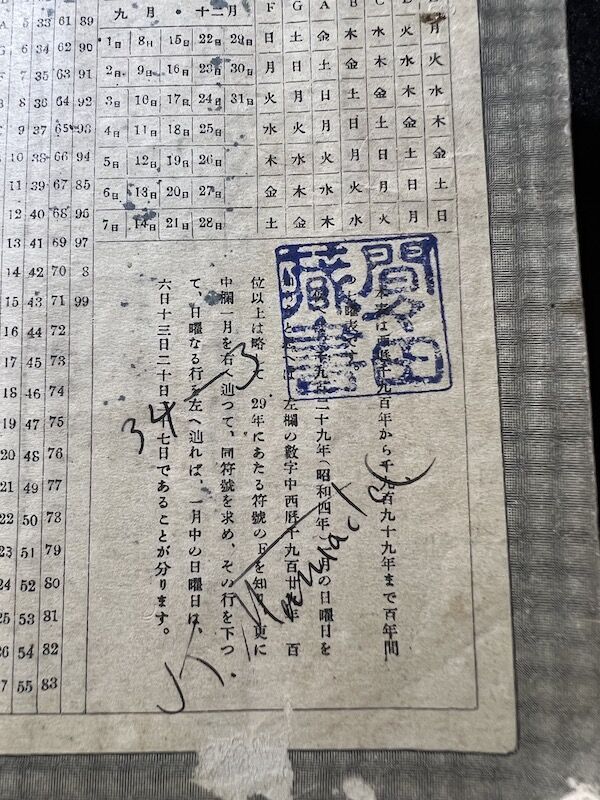 九月・十二月 F G A B C
5 33 61 89 1日 8日 15日 22日 29日 日 土 金 木 水 火 月
6 34 62 90 2日 9日 16日 23日 30日 月 日 土 金 木 水 火
7 35 63 91 3日 10日 17日 24日 31日 火 月 日 土 金 木 水
8 36 64 92 4日 11日 18日 25日 水 火 月 日 土 金 木
9 37 65 93 5日 12日 19日 26日 木 水 火 月 日 土 金
10 38 66 94 6日 13日 20日 27日 金 木 水 火 月 日 土
11 39 67 85 7日 14日 21日 28日 土 金 木 水 火 月 日
12 40 68 96
13 41 69 97
14 42 70 8
15 43 71 99
16 44 72
17 45 73
18 46 74
19 47 75
20 48 76
21 49 77
22 50 78
23 51 79
24 52 80
25 53 81
26 54 82
55 83
本表は西暦千九百年から千九百九十九年まで百年間
七曜表です。
九百二十九年(昭和四年)一月の日曜日を
左欄の数字中西暦千九百廿九年 百
位以上は略 29年にあたる符號のFを知り更に
中欄一月を右へ辿つて、同符號を求め、その行を下つ
て、日曜なる行を左へ辿れば、一月中の日曜日は、
六日十三日二十日廿七日であることが分ります。
蔵書
34-3